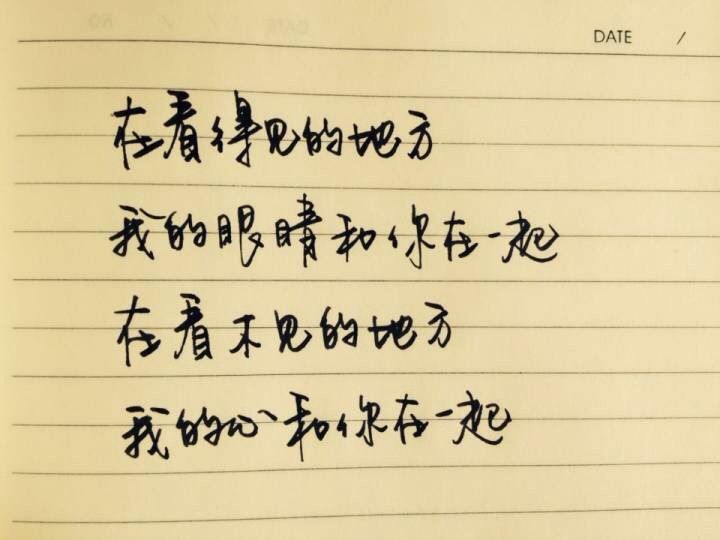 DATE /
在看得见的地方
我的眼睛和你在一起
在看不见的地方
我的心和你在一起